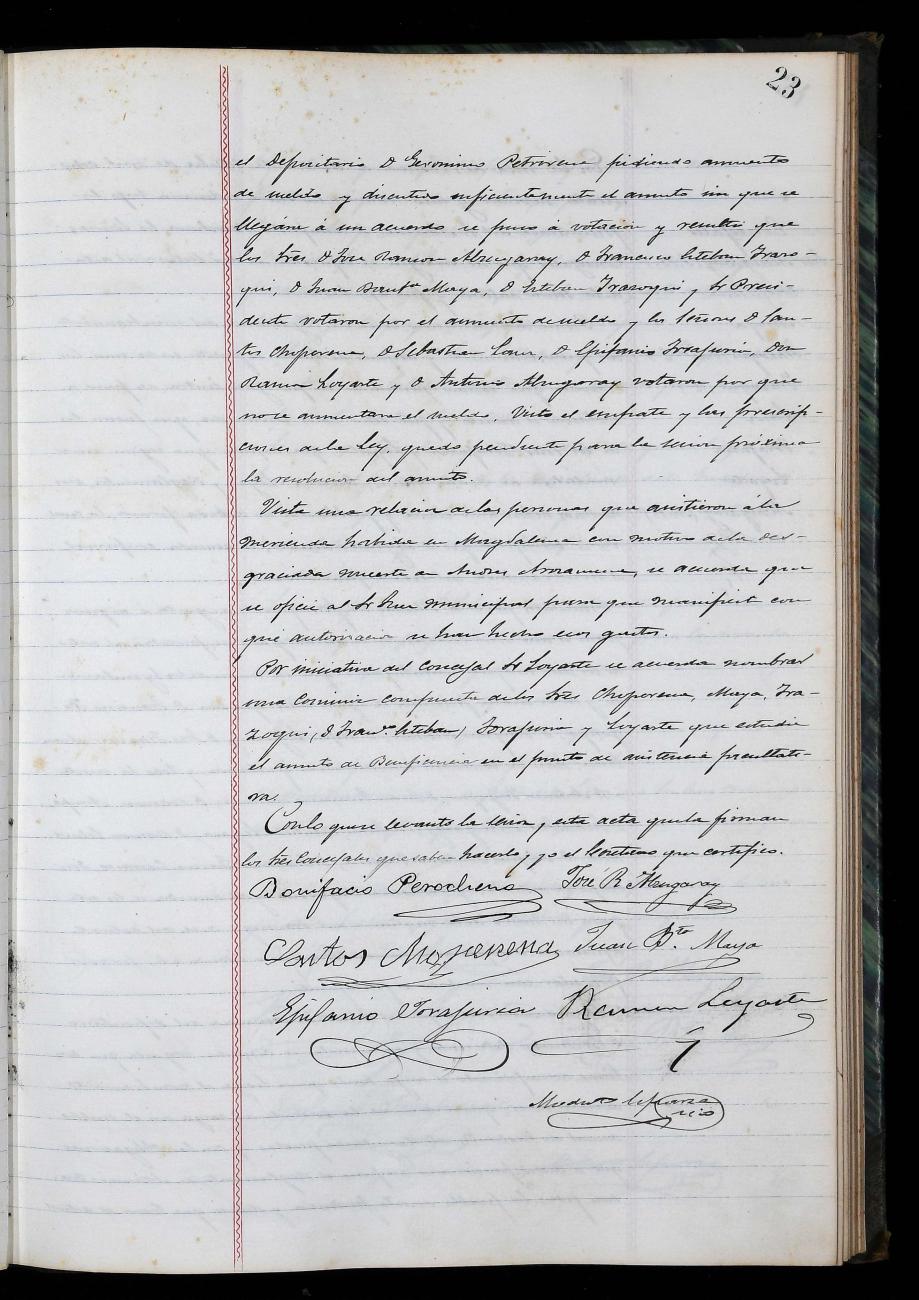 23
el Depositario D Geronimo Petrirena pidiendo aumento
de sueldo y discutido suficientemente el asunto sin que se
llegara á un acuerdo se puso á votacion y resultó que
los Sres. D Jose Ramon Almgaray, D Francisco Esteban Irazo-
qui, D Juan Baut.ta Maya, D Esteban Irazoqui y Sr Presi-
dente votaron por el aumento de sueldo y los Señores D San-
tos Choperena, D Sebastian D Epifanio Torajuria, Don
Ramon Loyarte y D Antonio votaron por que
no se aumentara el sueldo. Visto el empate y las prescrip-
ciones de la Ley, quedó pendiente para la sesion próxima
la resolucion del asunto.
Vista una relacion de las personas que asistieron á la
merienda habida en Magdalena con motivo de la des-
graciada muerte de Andres se acuerda que
se oficie al Sr Juez municipal para que manifieste con
qué autorizacion se han hecho esos gastos.
Por iniciativa del Concejal Sr Loyarte se acuerda nombrar
una Comision compuesta de los Sres Choperena, Maya, Ira-
zoqui, (D Fran.co Esteban) Torajuria y Loyarte que estudie
el asunto de Beneficencia en el punto de asistencia facultati-
va.
Con lo que se levantó la sesion, esta acta que la firman
los Sres Concejales que saben hacerlo, yo el Secretario que certifico.
Bonifacio Perochena Jose R Almgaray
Santos Choperena Juan B.ta Maya
Epifanio Torajuria Ramon Loyarte
Modesto